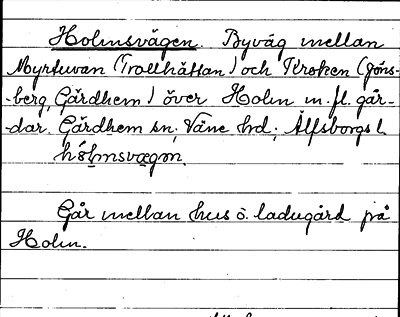 Holmsvägen. Byväg mellan
Myrtuvan (Trollhättan) och Kroken (Jöns-
-berg, Gärdhem) över Holm m. fl. går-
-dar, Gärdhem sn, Väne hd, Älfsborgs l.
hólmsvægən.
Går mellan hus o. ladugård på
Holm.